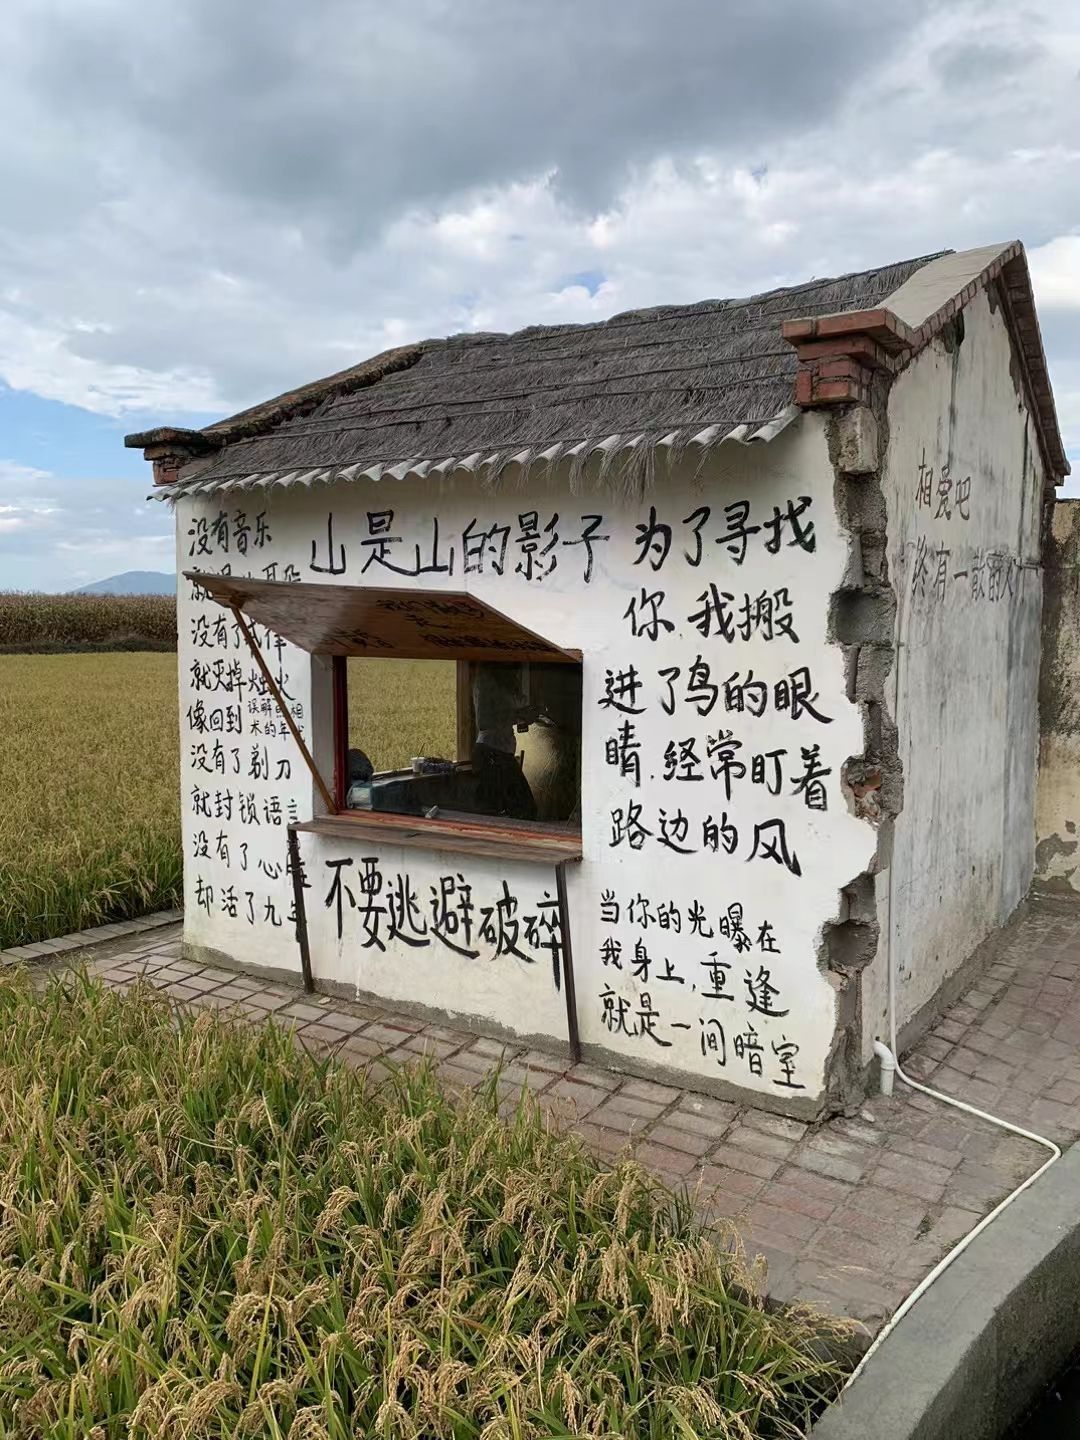 没有音乐
就是 耳朵
没有了 律
就灭掉烛火
像回到误解 相
术的年代
没有了剃刀
就封锁语言
没有了心脏
却活了九
山是山的影子
不要逃避破碎
为了寻找
你,我搬
进了鸟的眼
睛,经常盯着
路边的风
当你的光曝在
我身上,重逢
就是一间暗室
相爱吧
终有一散的人